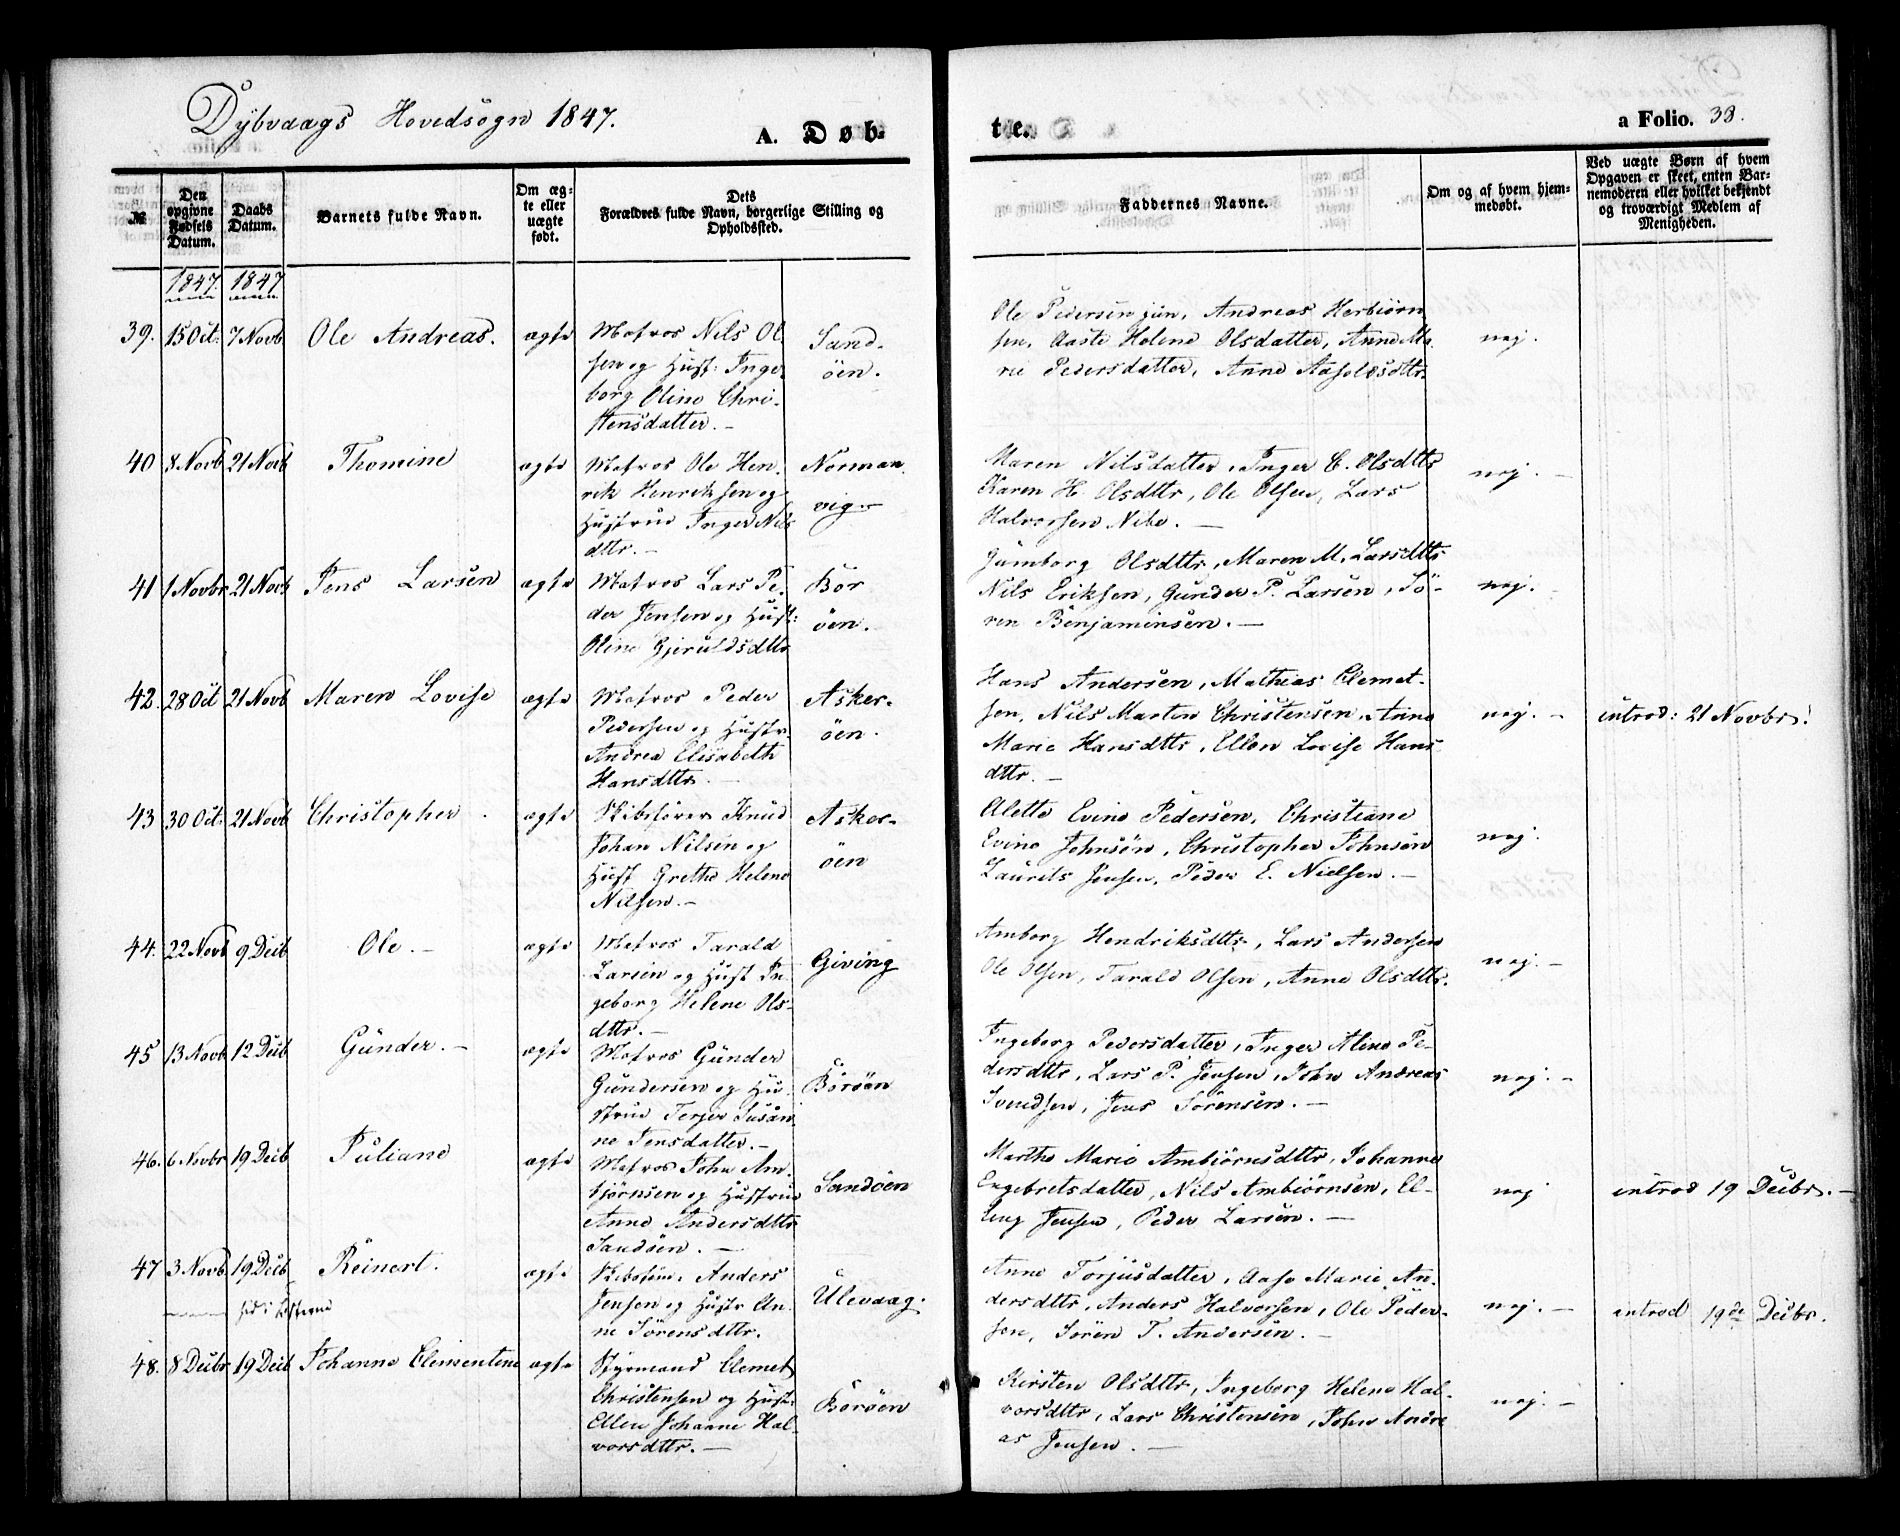 Dybvaags Hovedsogn 1847.
A. Døb-
te.
a Folio. 38.
№
Den opgivne Fødsels Datum.
Daabs Datum.
Barnets fulde Navn.
Om ægte eller uægte født.
Dets Forældres fulde Navn, borgerlige Stilling og Opholdssted.
Faddernes Navne.
Om og af hvem hjemmedøbt.
Ved uægte Børn af hvem Opgaven er skeet, enten Barnemoderen eller hvilket bekjendt og troværdigt Medlem af Menigheden.
1847. 1847
39. 15 Oct. 7 Novb Ole Andreas. ægte
Matros Nils Ol
sen og Hust: Inge-
borg Oline Chri-
stensdatter. –
Sand-
öen.
Ole Pedersen jun, Andreas Herbiörn
sen, Aaste Helene Olsdatter, Anne Ma
rie Pedersdatter, Anne Aasoldsdttr.
nej.
40 8 Novb 21 Novb Thomine ægte
Matros Ole Hen-
rik Henriksen og
Hustrue Inger Nils
dttr. –
Norman
vig –
Maren Nilsdatter, Inger C. Olsdttr
Karen H. Olsdttr, Ole Olsen, Lars
Halvorsen Nibe. –
nej. –
41 1 Novbr 21 Novb Jens Larsen ægte
Matros Lars Pe-
der Jensen og Hust:
Oline Gjeruldsdttr
Bor
öen.
Gumborg Olsdttr, Maren M. Larsdttr
Nils Eriksen, Gunder P. Larsen, Sö-
ren Benjaminsen. –
nej. –
42. 28 Oct 21 Novb Maren Lovise ægte
Matros Peder
Pedersen og Hustr.
Andrea Elisabeth
Hansdttr. –
Asker-
öen.
Hans Andersen, Mathias Clemet-
sen, Nils Martin Christensen, Anne
Marie Hansdttr, Ellen Lovise Hans
dttr. –
nej. –
introd: 21 Novbr.
43 30 Oct. 21 Novb Christopher. ægte
Skibsförer Knud
Johan Nilsen og
Hust Grethe Helene
Nilsen. –
Asker-
öen
Alette Evine Pedersen, Christiane
Evine Johnsen, Christopher Johnsen
Laurits Jensen, Peder E. Nielsen. –
nej.
44. 22 Novb 9 Decb Ole. – ægte
Matros Tarald
Larsen og Hust In-
geborg Helene Ols-
dttr. –
Giving
Amborg Hendriksdttr, Lars Andersen
Ole Olsen, Tarald Olsen, Anne Olsdttr.
nej. –
45 13 Novb 12 Decb Gunder. – ægte
Matros Gunder
Gundersen og Hu-
strue Terjer Susan
ne Jensdatter. –
Boröen
Ingeborg Pedersdatter, Inger Aline Pe-
dersdttr, Lars P. Jensen, John Andreas
Svendsen, Jens Sörensen. –
nej. –
46. 6 Novbr 19 Decb Juliane ægte
Matros John Am-
björnsen og Hustrue
Anne Andersdttr
Sandöen. –
Sandöen
Marthe Marie Ambiörnsdttr, Johanne
Engebretsdatter, Nils Ambiörnsen, El-
ling Jensen, Peder Larsen. –
nej
introd 19 Decbr. –
47 3 Novb. 19 Decb Reinert. ægte
Skibstöm. Anders
Jensen og Hustr An-
ne Sörensdttr.
Ulevaag.
Anne Torjusdatter, Aase Marie An-
dersdttr, Anders Halvorsen, Ole Peder-
sen, Sören T. Andersen. –
nej. –
introd 19de Decbr.
48. 8 Decbr 19 Decb Johanne Clementine ægte
Styrmand Clemet
Christensen og Hust:
Ellen Johanne Hal-
vorsdttr. –
Boröen
Kirsten Olsdttr, Ingeborg Helene Hal-
vorsdttr, Lars Christensen, John Andre
as Jensen. –
nej. –